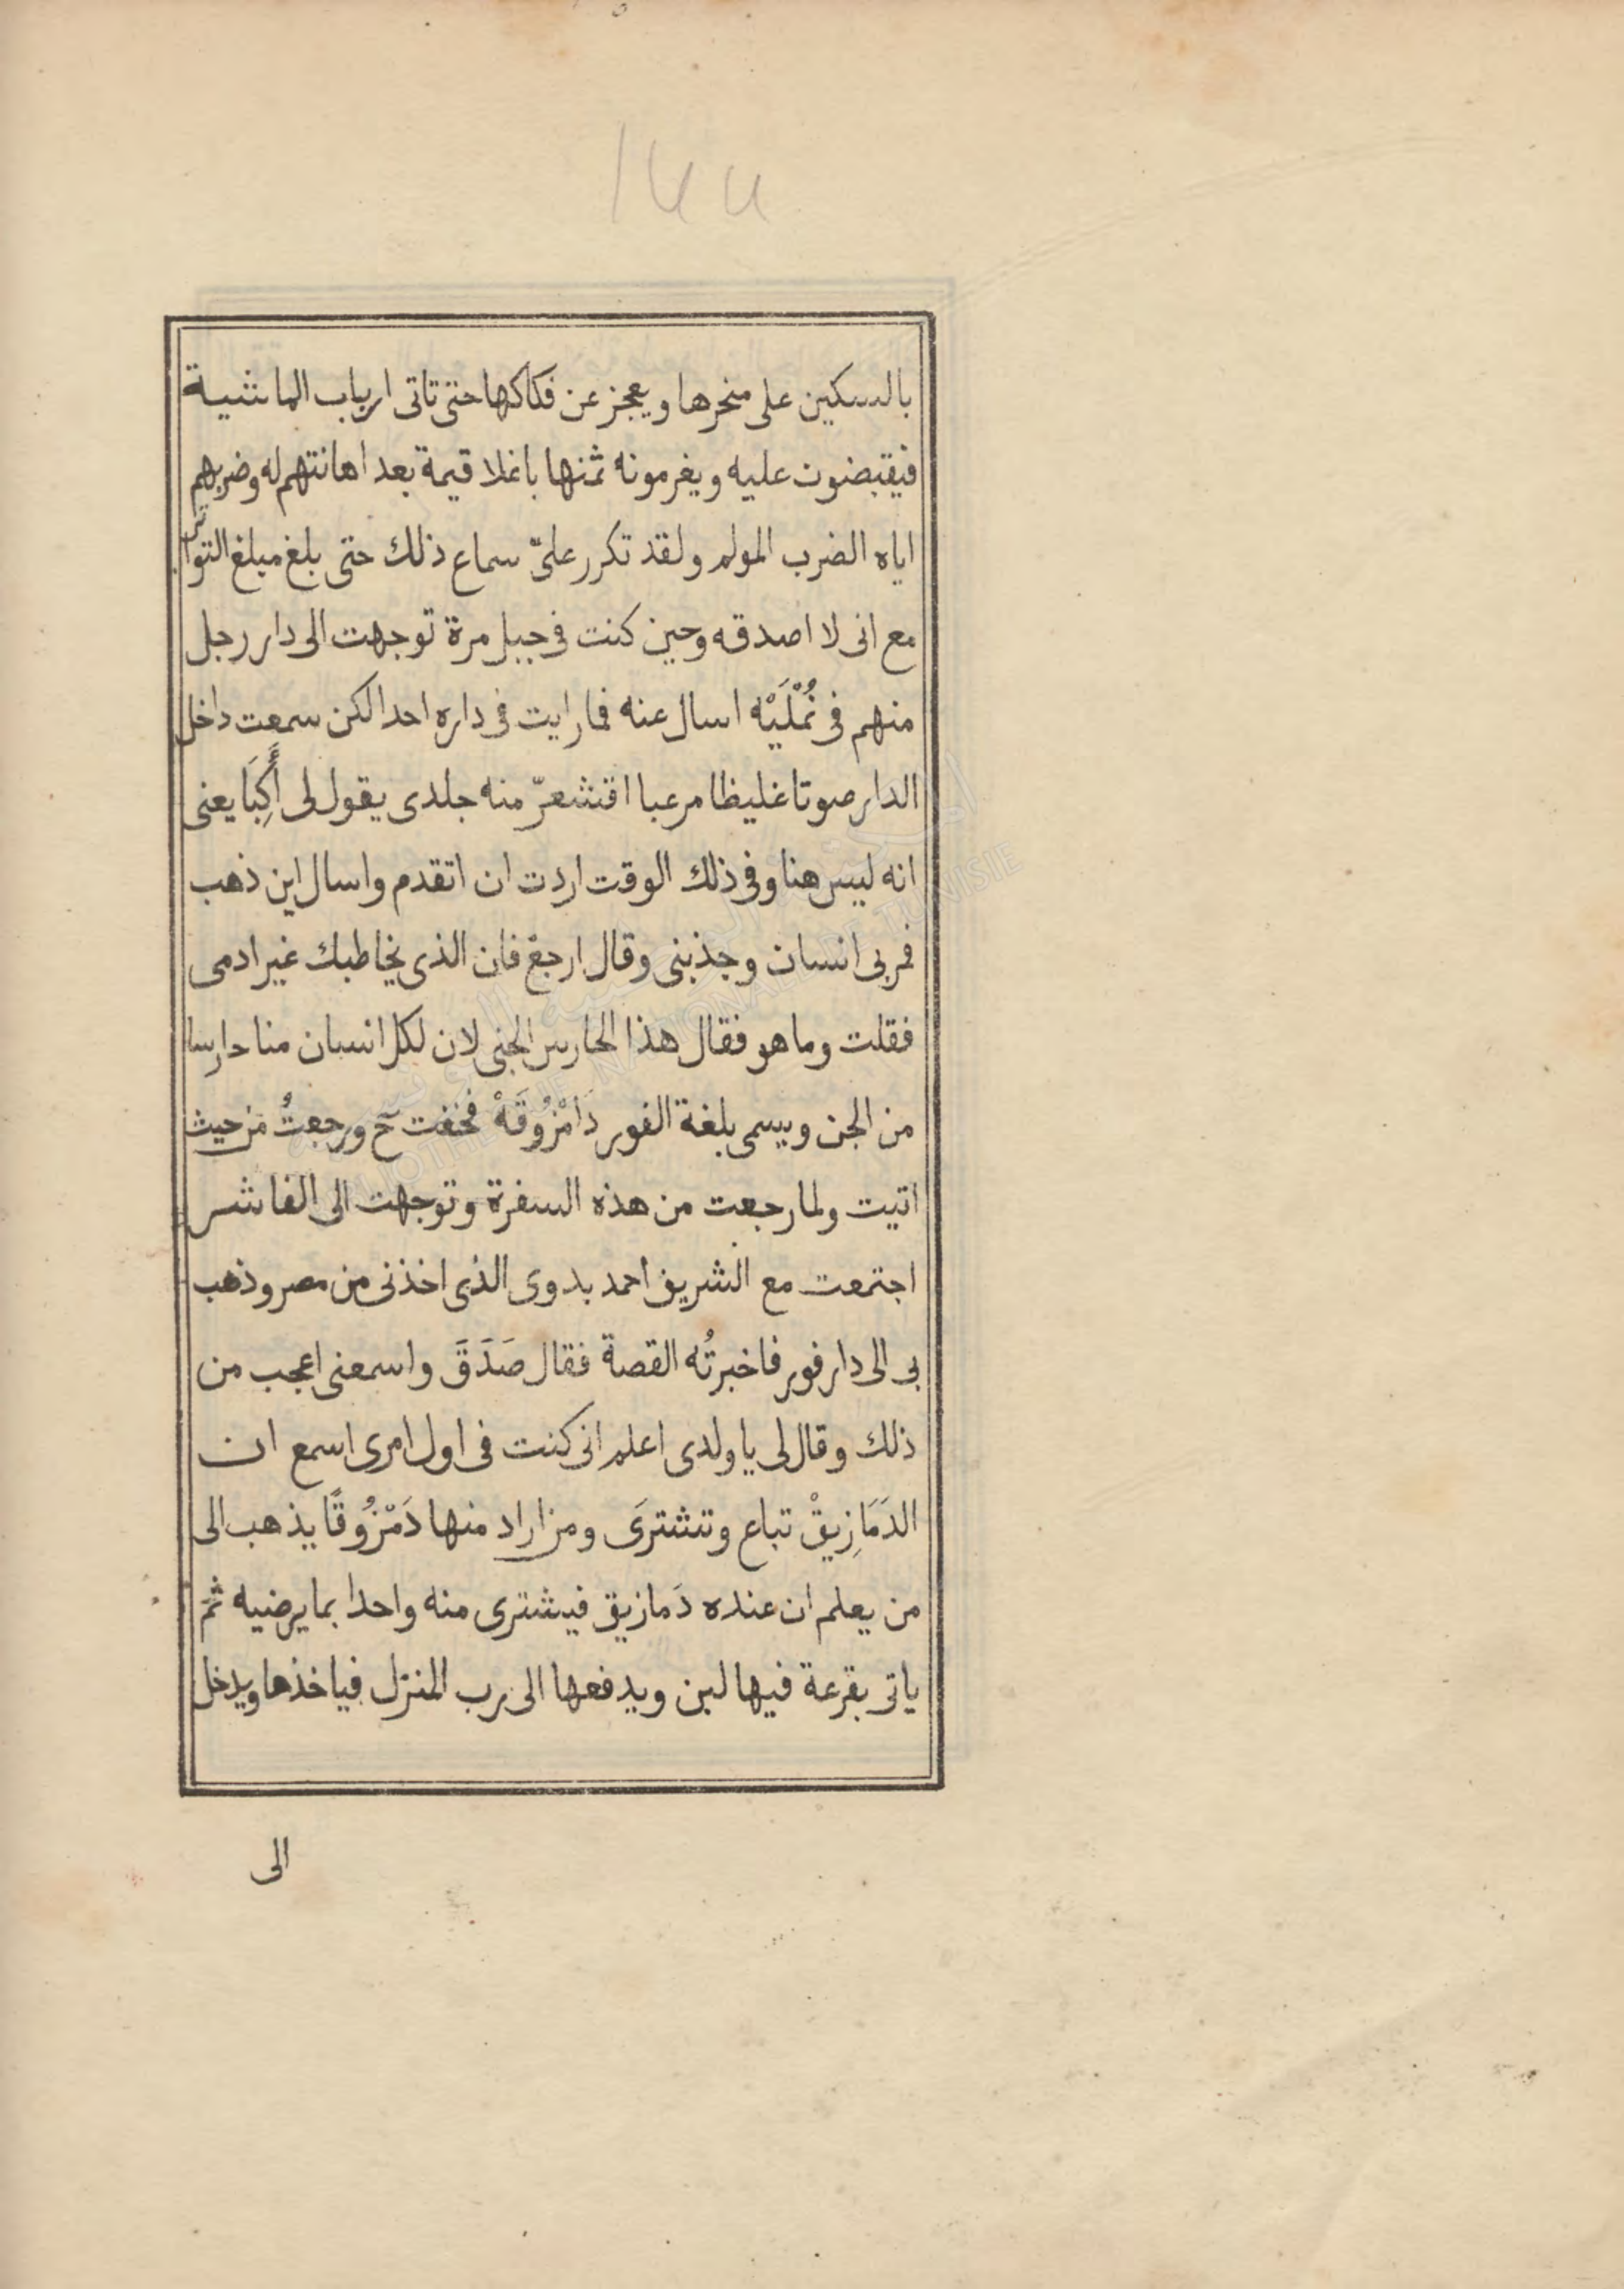 ١٤٤
بالسكين على منحرها ويعجز عن فكاكها حتى تاتى ارباب الماشية
فيقبضون عليه ويغرمونه ثمنها باغلا قيمة بعد اهانتهم له وضربهم
اياه الضرب المولم ولقد تكرر علىّ سماع ذلك حتى بلغ مبلغ التواتر
مع انى لا اصدقه وحين كنت فى جبل مرة توجهت الى دار رجل
منهم فى نُمْلَيْه اسال عنه فما رايت فى داره احدا لكن سمعت داخل
الدار صوتا غليظا مرعبا اقشعرّ منه جلدى يقول لى أَكِبَا يعنى
انه ليس هنا وفى ذلك الوقت اردت ان اتقدم واسال اين ذهب
فمر بى انسان وجذبنى وقال ارجعْ فان الذى يخاطبك غير ادمى
فقلت وما هو فقال هذا الحارس الجنى لان لكل انسان منا حارسا
من الجن ويسمى بلغة الفور دَامْزُوقَهْ فخفت ح ورجعتُ من حيث
اتيت ولما رجعت من هذه السفرة وتوجهت الى الفاشر
اجتمعت مع الشريف احمد بدوى الذى اخذنى من مصر وذهب
بى الى دار فور فاخبرتُه القصة فقال صَدَقَ واسمعنى اعجب من
ذلك وقال لى يا ولدى اعلم انى كنت فى اول امرى اسمع ان
الدَمَازِيقْ تباع وتشترَى ومن اراد منها دَمْزُوقًا يذهب الى
من يعلم ان عنده دَمازيق فيشترى منه واحدا بما يرضيه ثمّ
ياتى بقرعة فيها لبن ويدفعها الى رب المنزل فياخذها ويدخل
الى
BIBLIOTHEQUE NATIONALE DE TUNISIE